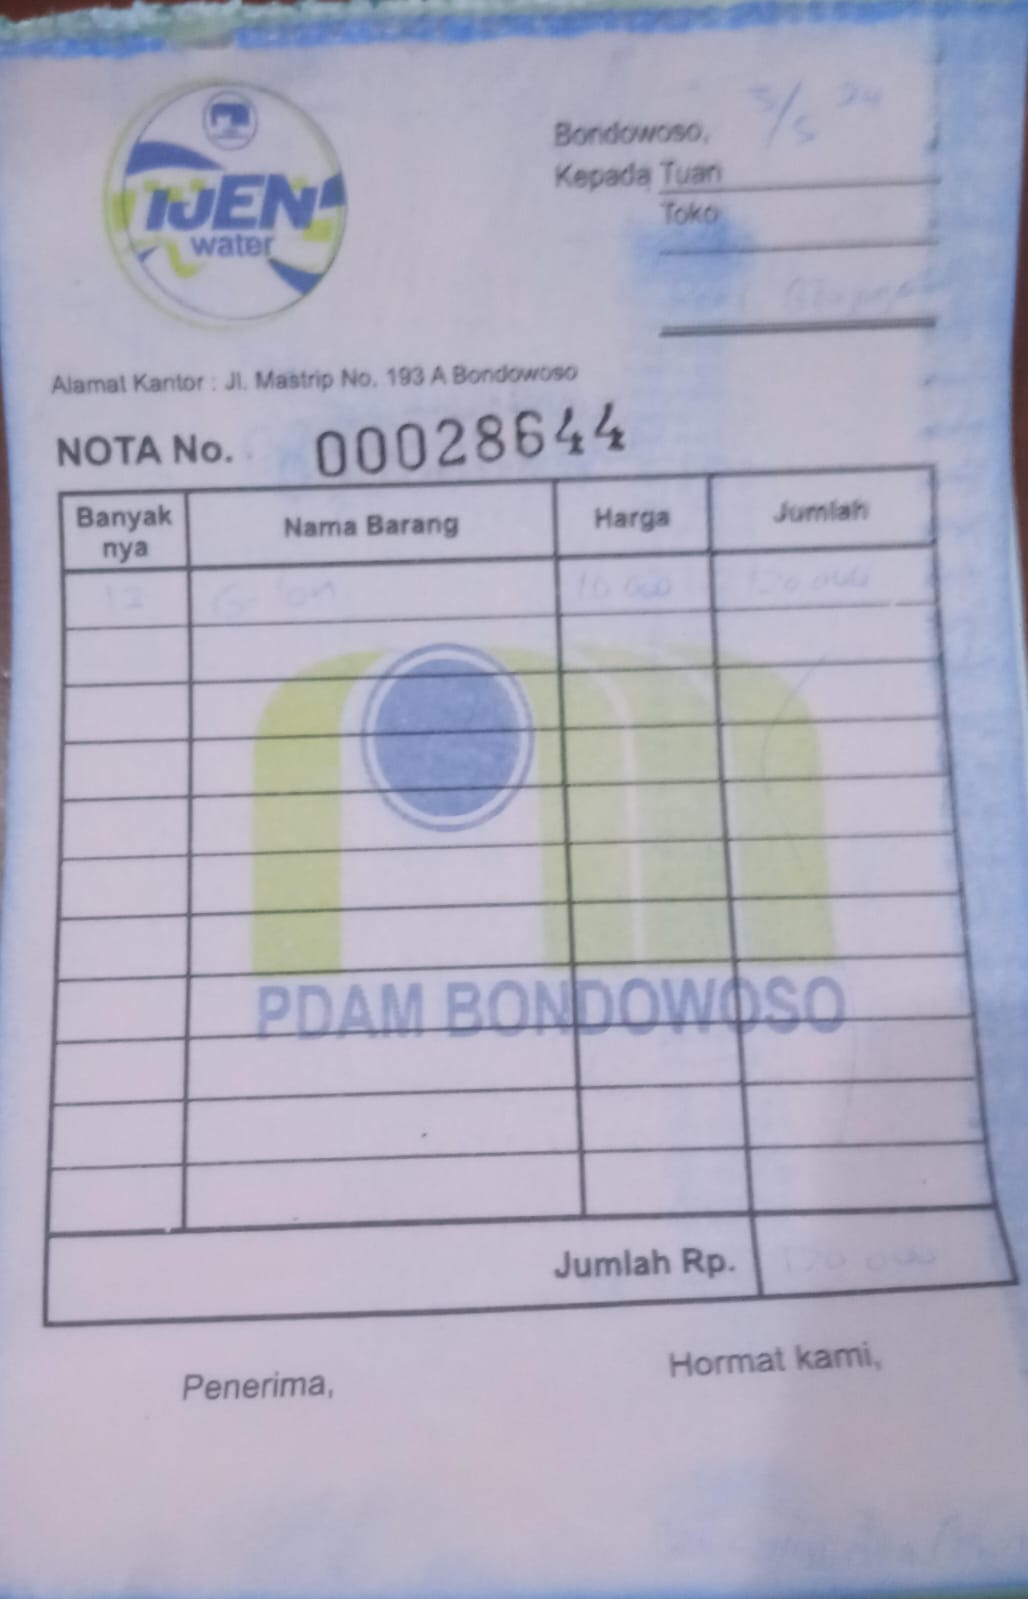 IJEN
water
Bondowoso, 3/5 24
Kepada Tuan
Toko
Alamat Kantor : Jl. Mastrip No. 193 A Bondowoso
NOTA No. 00028644
Banyak nya Nama Barang Harga Jumlah
10 000 120 000
PDAM BONDOWOSO
Jumlah Rp. 120 000
Penerima, Hormat kami,